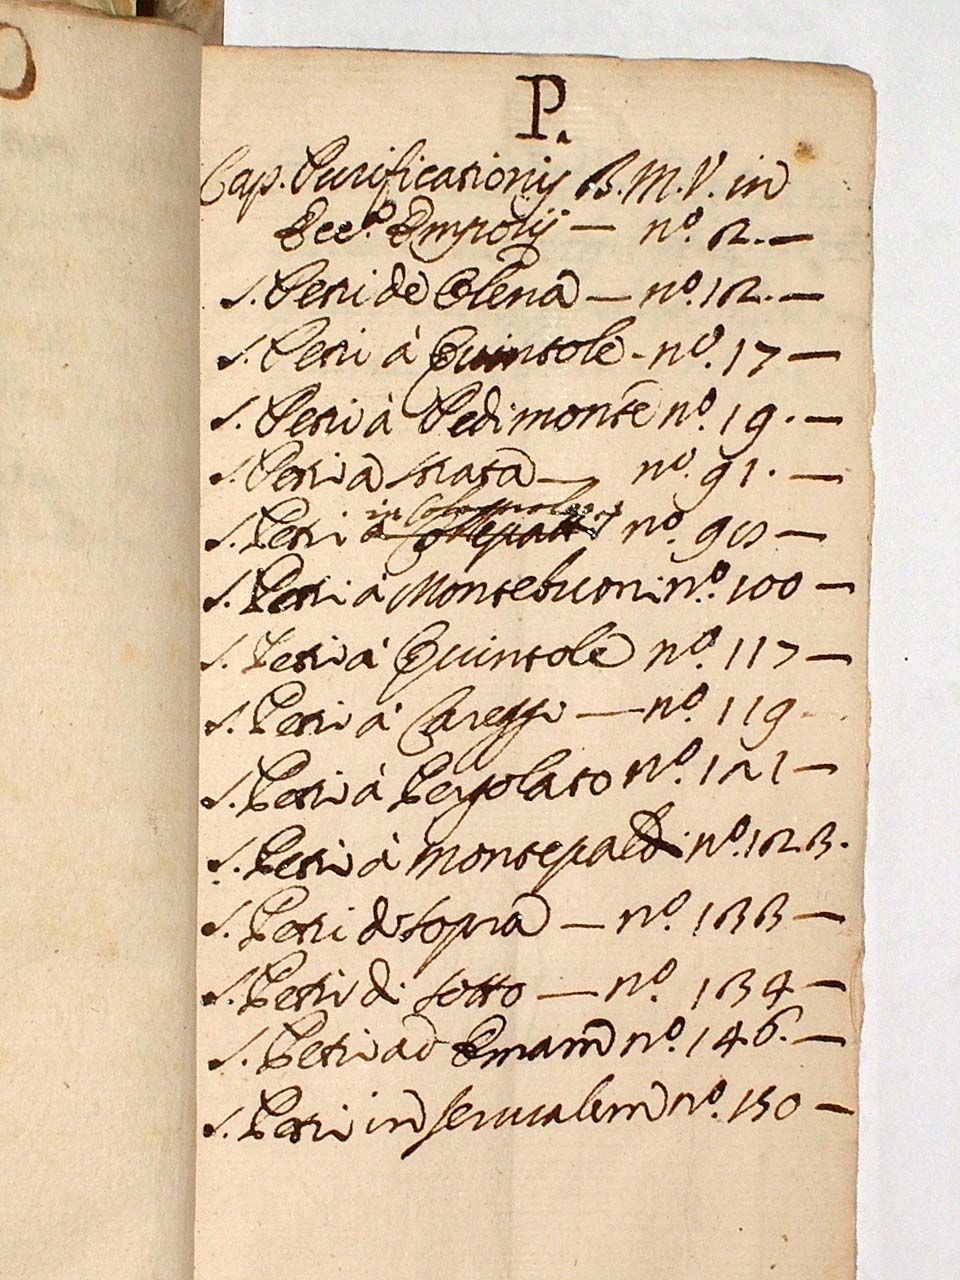 P.
Cap. Purificationis B. M. V. in
Eccl.ª Empolij — nº. 2. —
S. Petri de Elena — nº. 12. —
S. Petri à Quintole - nº. 17 —
S. Petri à Pedimonte nº. 19. —
S. Petri a Strata — nº. 91. —
in
S. Petri nº. —
S. Petri à Montebuoni nº. 100 —
S. Petri à Quintole nº. 117 —
S. Petri à Careggi — nº. 119 -
S. Petri à Pergolato nº. 121 —
S. Petri à Montepaldi nº. 123.
S. Petri di sopra — nº. 133 —
S. Petri di sotto — nº. 134 —
S. Petri ad Emam nº. 146. —
S. Petri in Jerusalem nº. 150 —